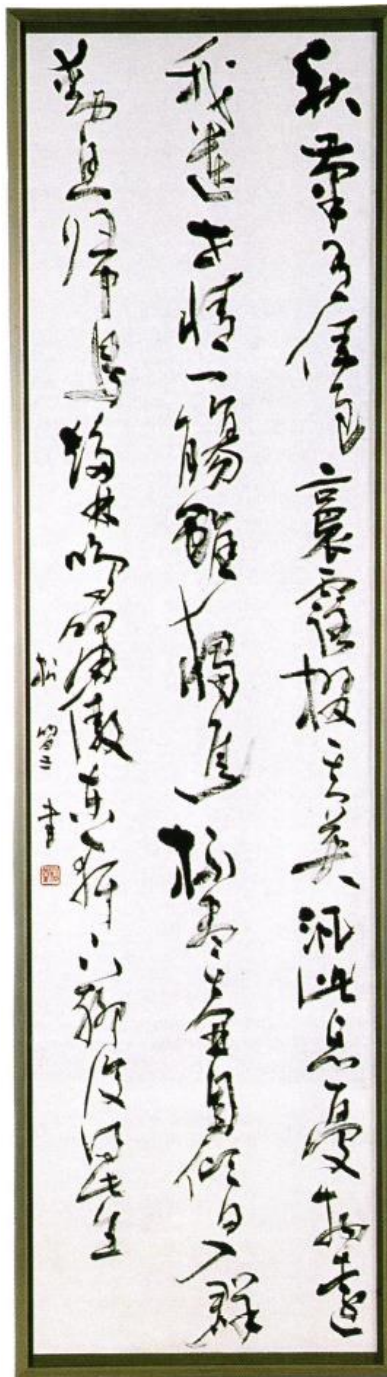 秋菊有佳色裛露掇其英汎此忘憂物遠
我遺世情一觴雖獨進杯盡壺自傾日入群
動息歸鳥趨林鳴嘯傲東軒下聊復得此生
書